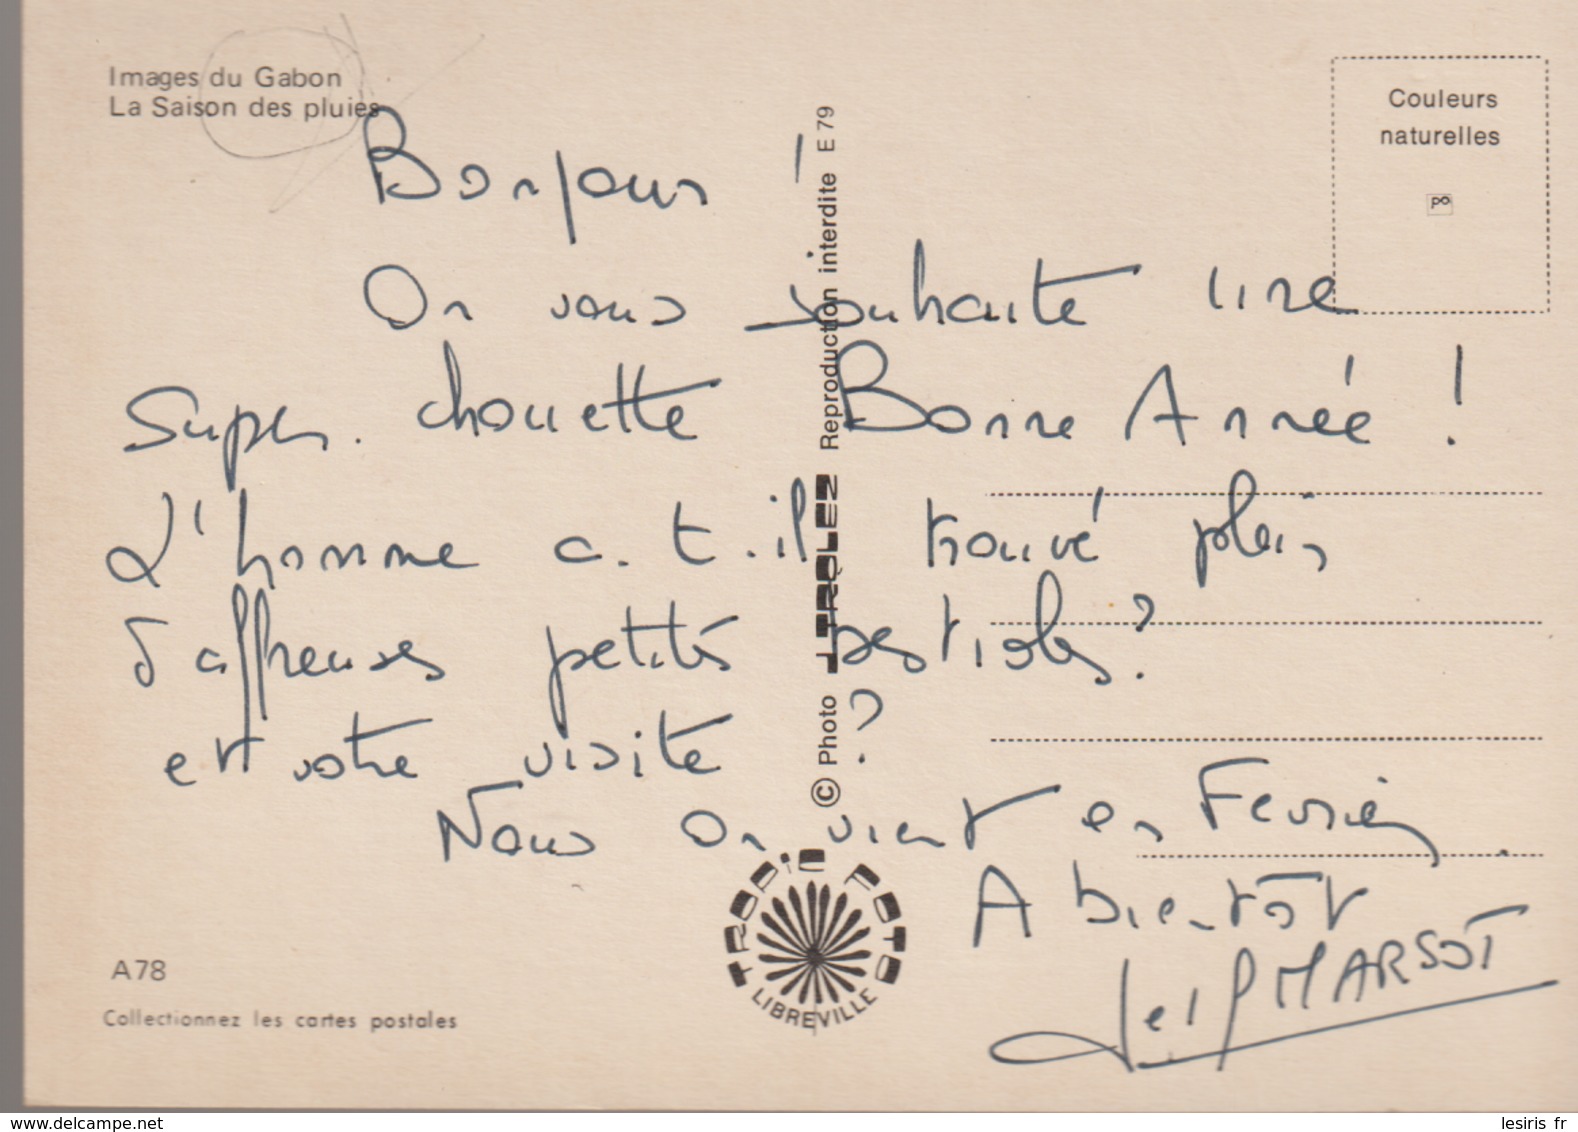 Images du Gabon
La Saison des pluies
Couleurs
naturelles
po
Bonjour !
On vous souhaite une
super. chouette Bonne Année !
L'homme a.t.il trouvé plein
d'affreuses petites bestioles ?
et votre visite ?
Nous on vient en Février.
A bientôt
J et P MARSOT
© Photo J TROLEZ Reproduction interdite E 79
TROPIC FOTO
LIBREVILLE
A78
Collectionnez les cartes postales
www.delcampe.net
lesiris fr